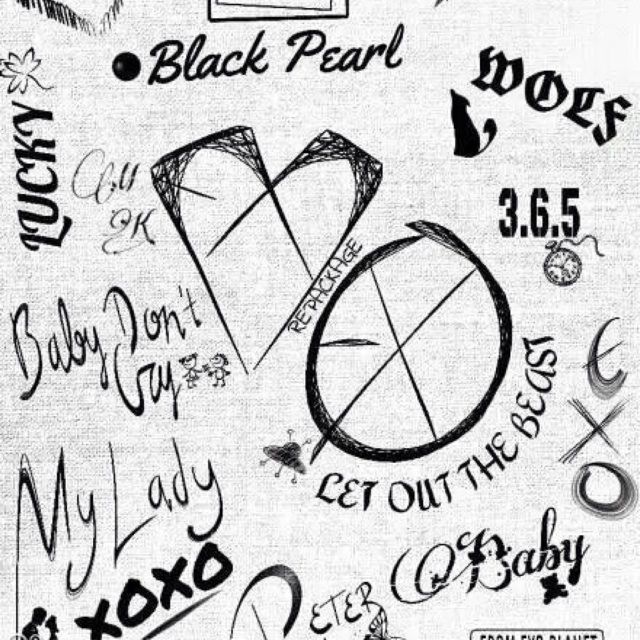 Black Pearl
WOLF
LUCKY
3.6.5
REPACKAGE
Baby Don't
Cry
LET OUT THE BEAST
EXO
My Lady
XOXO
Baby
PETER
FROM EXO PLANET